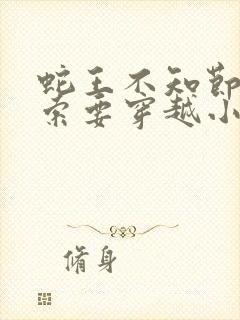 蛇王不知节
索要穿越小
脩身